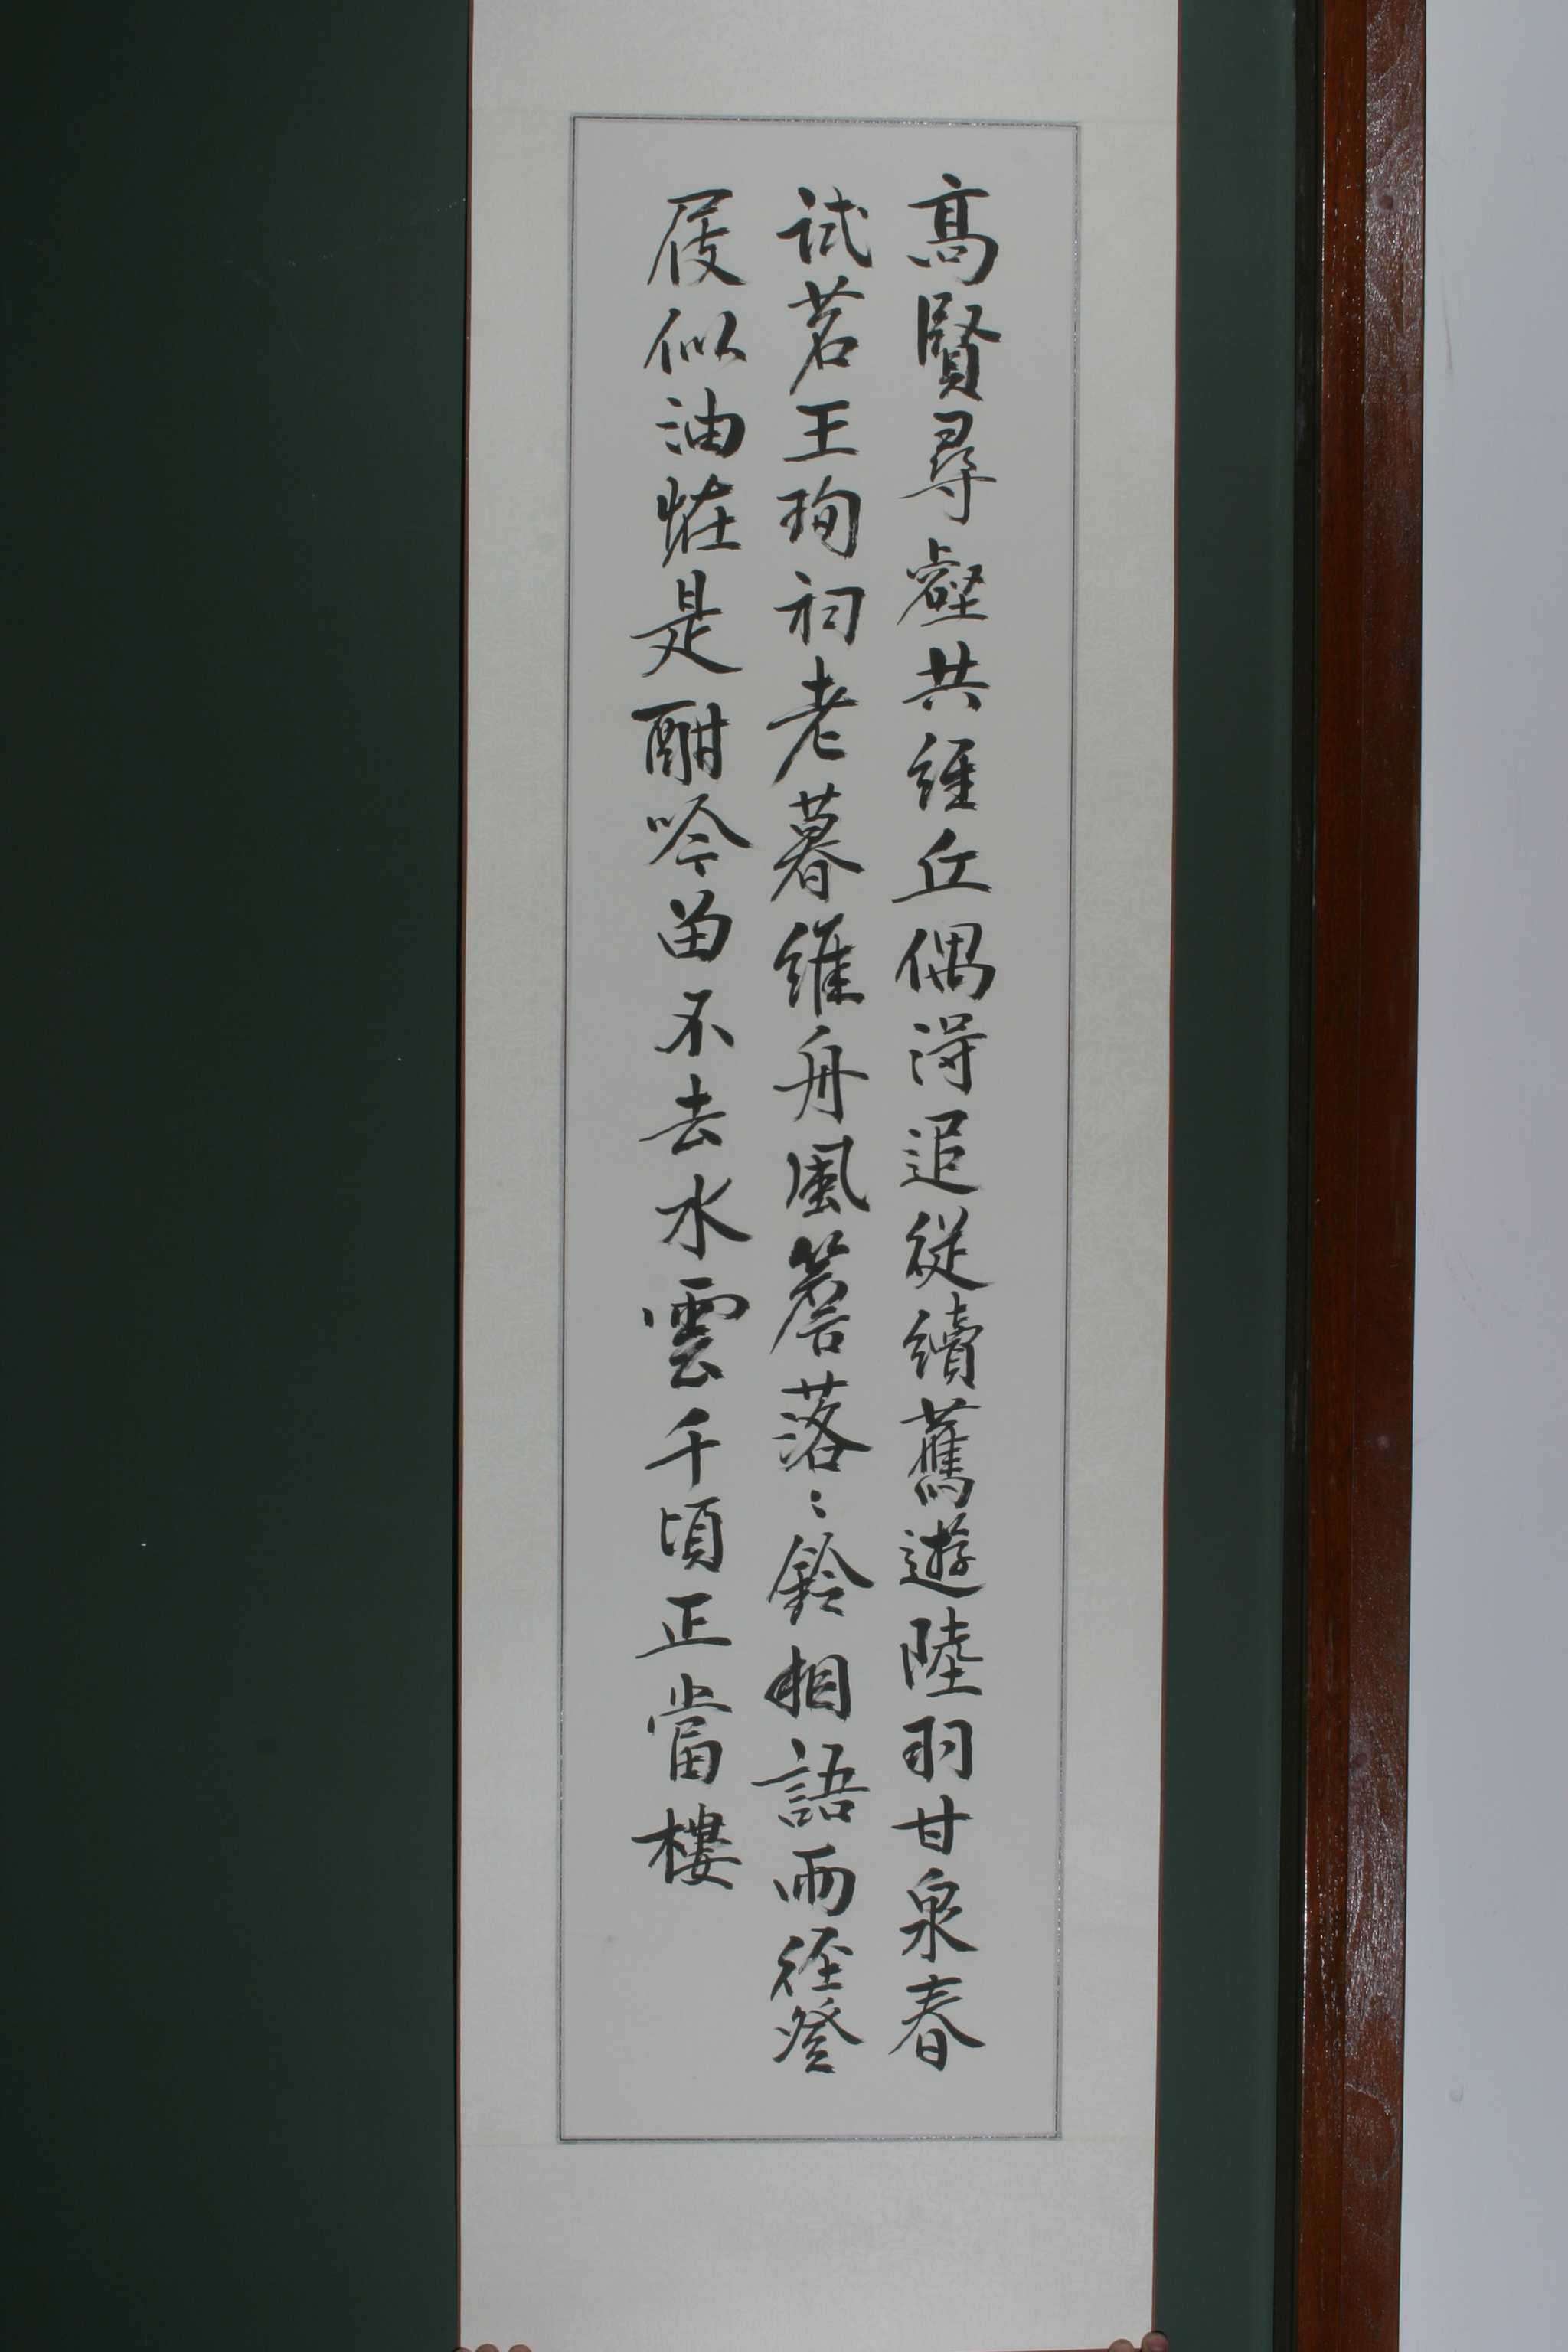 高賢尋壑共經丘偶得追從續舊遊陸羽甘泉春
試茗王珣祠老暮維舟風簷落〻鈴相語雨徑登
屐似油怪是酣吟留不去水雲千頃正當樓